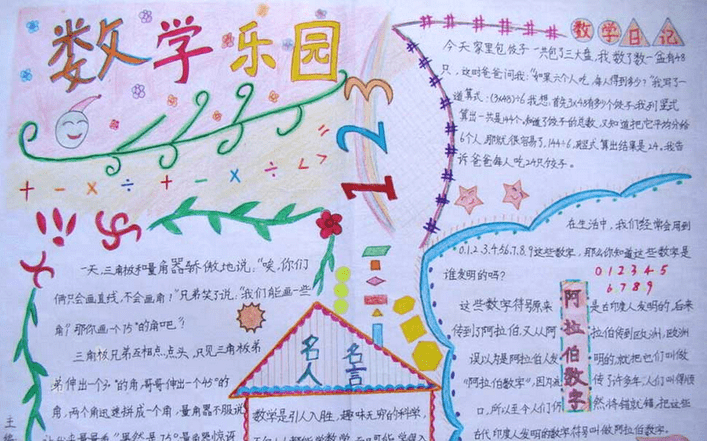 数学乐园
1 2 3
+ - × ÷ + - × ÷ < >
一天,三角板和量角器骄傲地说:“唉,你们
俩只会画直线,不会画角!”兄弟笑了说:“我们能画一些
角?那你画一个75°的角吧?”
三角板兄弟互相点点头,只见三角板弟
弟伸出一个30°的角,哥哥伸出一个45°的
角,两个角迅速拼成一个角,量角器不服说
名人名言
数学是引人入胜,趣味无穷的科学,
数学日记
今天家里包饺子一共包了三大盘,我数了数一盘有48
只,这时爸爸问我:“如果六个人吃,每人得到多少?”我写了一
道算式:(3×48)÷6我想:首先3×48有多少个饺子,我列竖式
算出一共是144个,知道了饺子的总数,又知道把它平均分给
6个人,那就很容易了,144÷6,竖式算出结果是24。我告
诉爸爸每人吃24只饺子。
在生活中,我们经常会用到
0.1.2.3.4.5.6.7.8.9这些数字,那么你知道这些数字是
谁发明的吗?
0 1 2 3 4 5
6 7 8 9
阿拉伯数字
这些数字符号原来是古印度人发明的,后来
传到了阿拉伯,又从阿拉伯传到欧洲,欧洲
误以为是阿拉伯人发明的,就把它们叫做
“阿拉伯数字”,因为流传了许多年人们叫得顺
口,所以至今人们仍然将错就错,把这些
古代印度人发明的数字符号叫做阿拉伯数字。